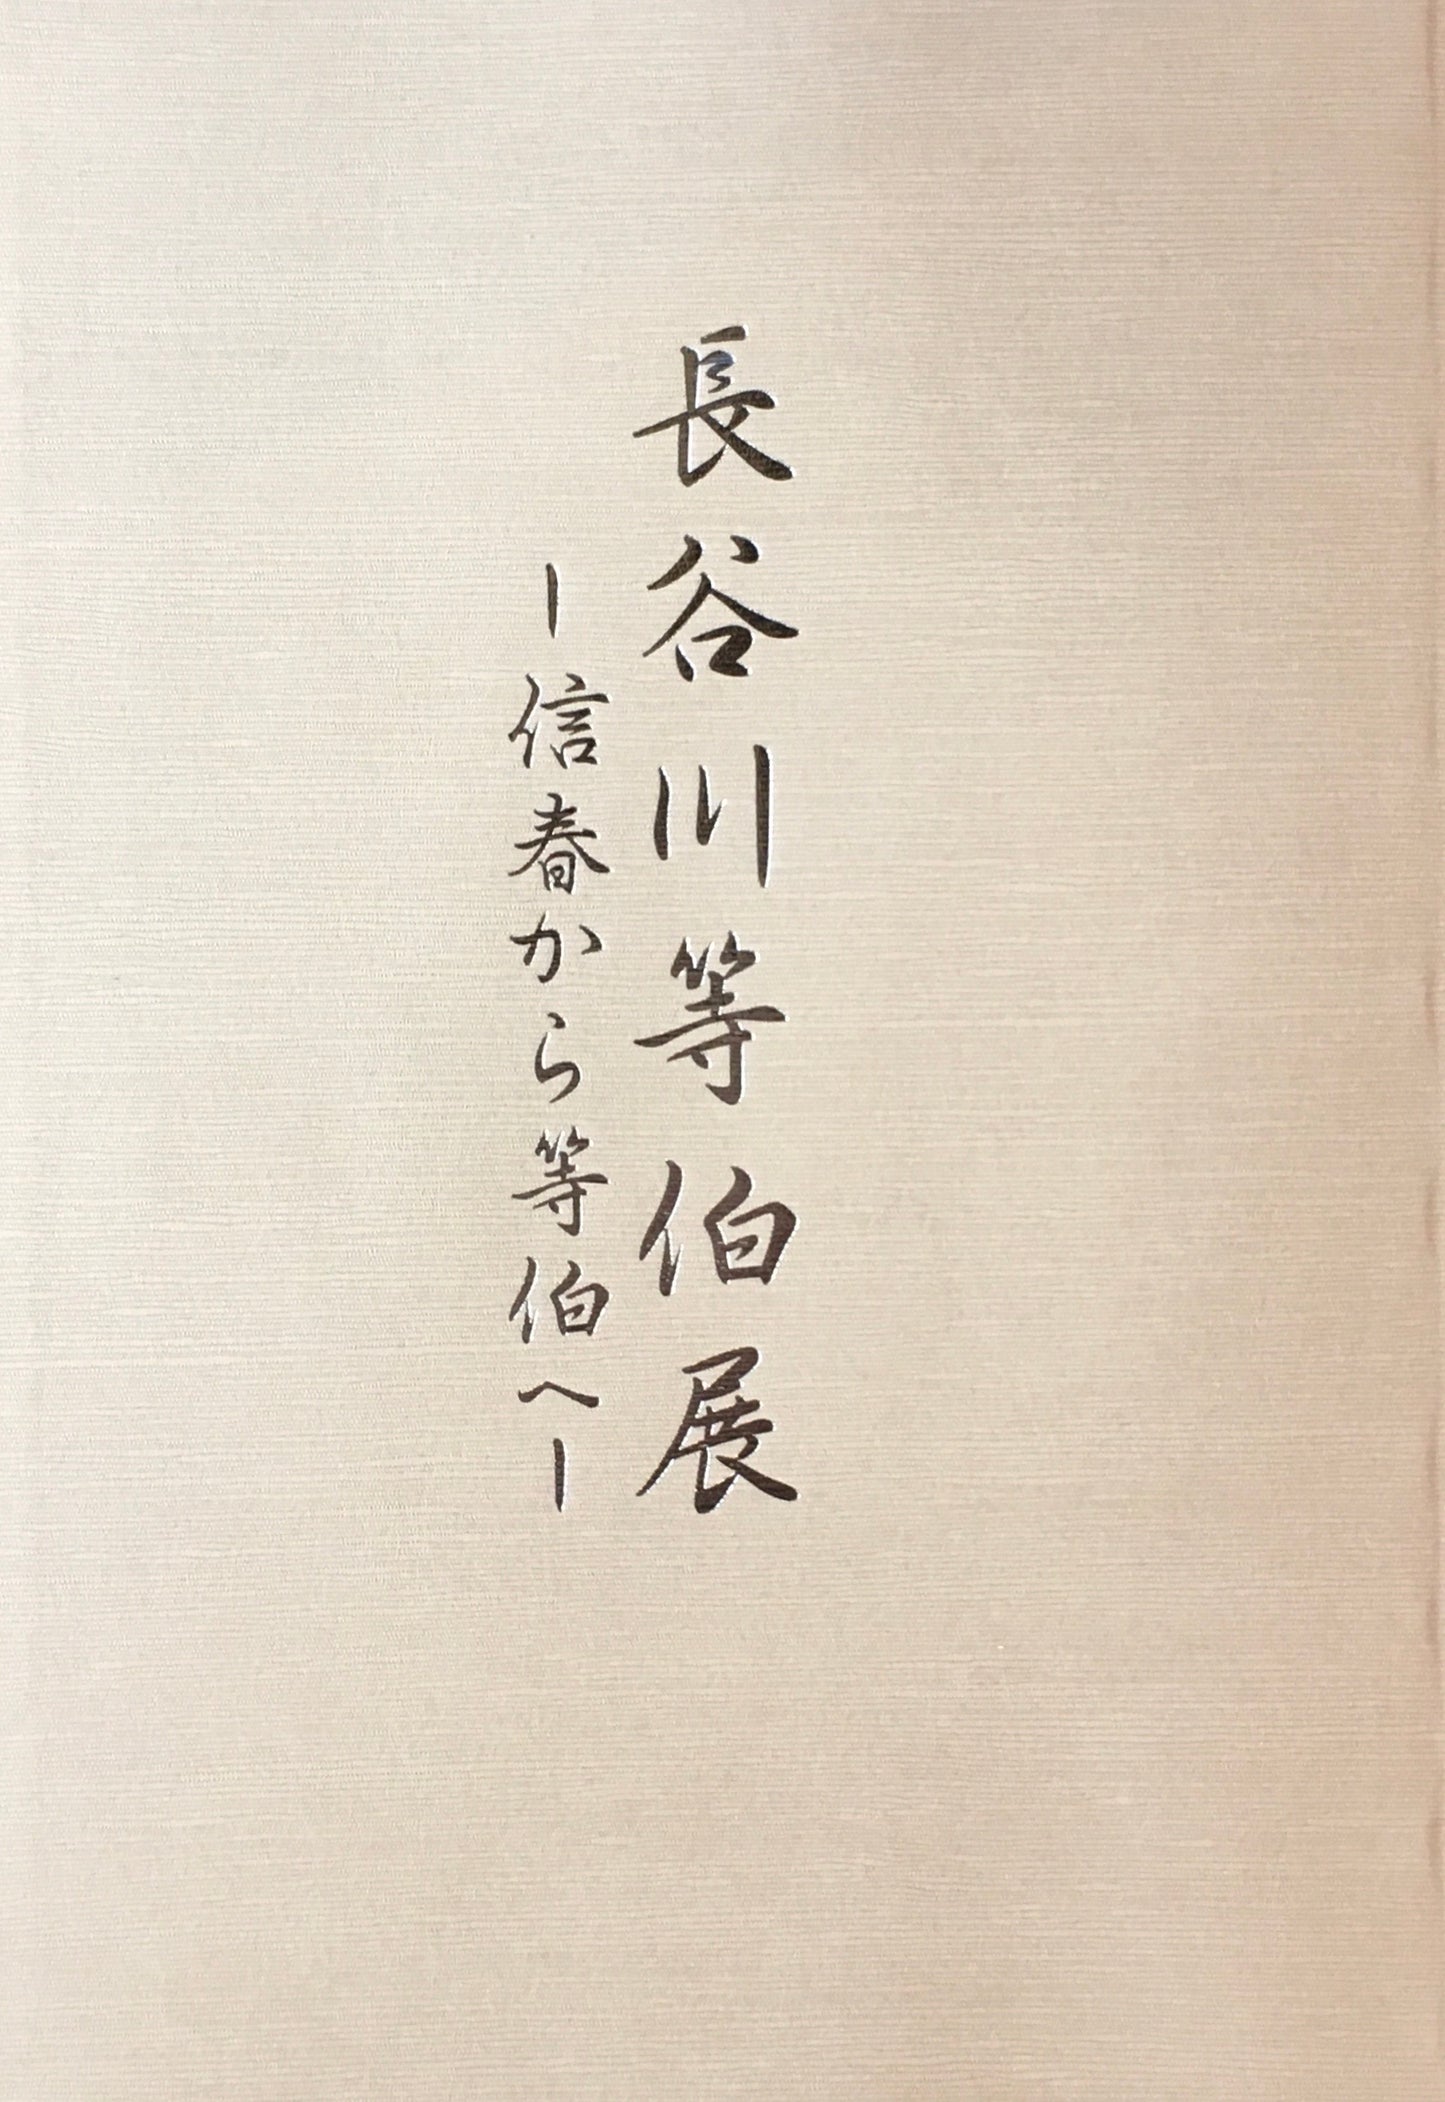 長谷川等伯展
ー信春から等伯へー